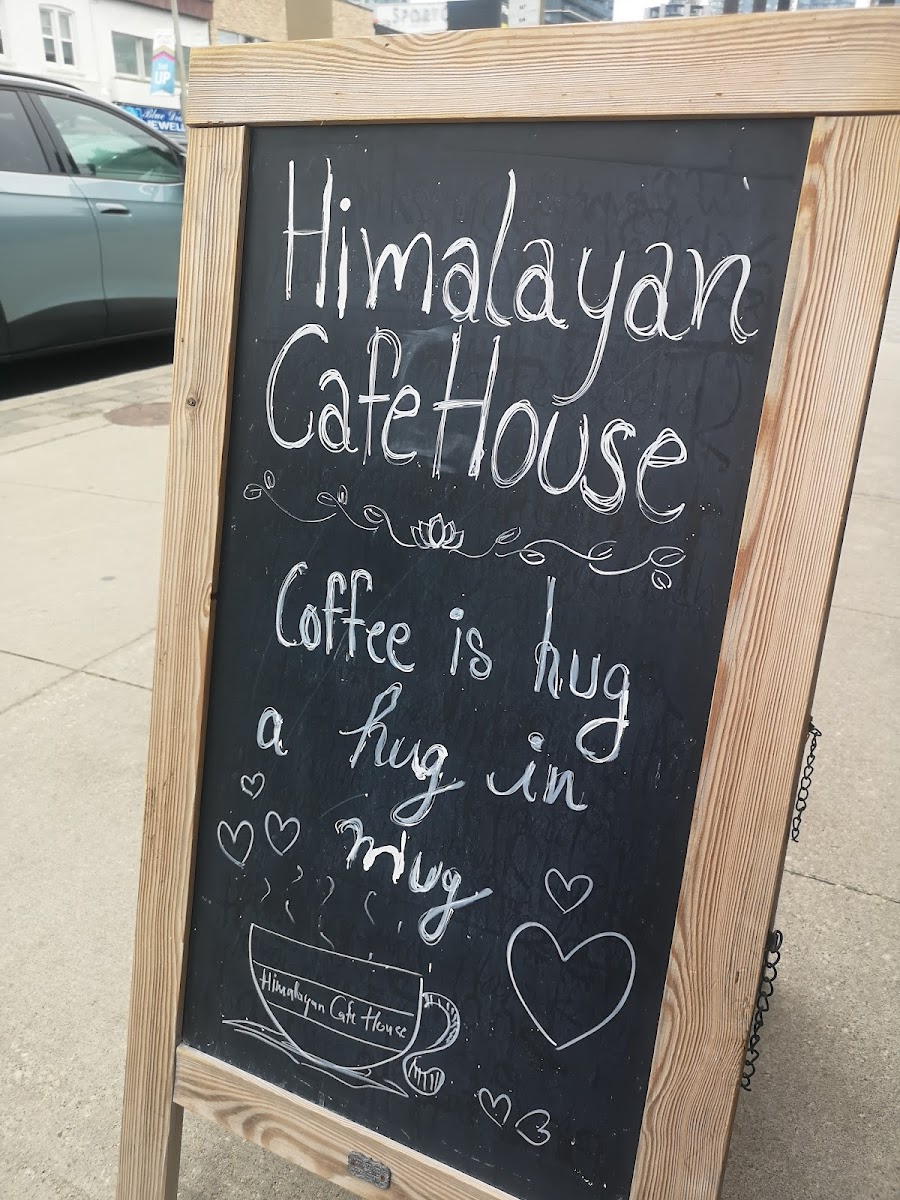 SPORT
UP
Blue
JEWELL
Himalayan
Cafe House
Coffee is hug
a hug in
mug
Himalayan Cafe House